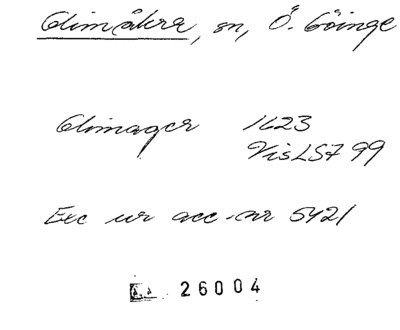 Glimåkra, sn, Ö. Göinge
Glimager 1623
VisLSF 99
Exc ur acc.nr 5421
26004